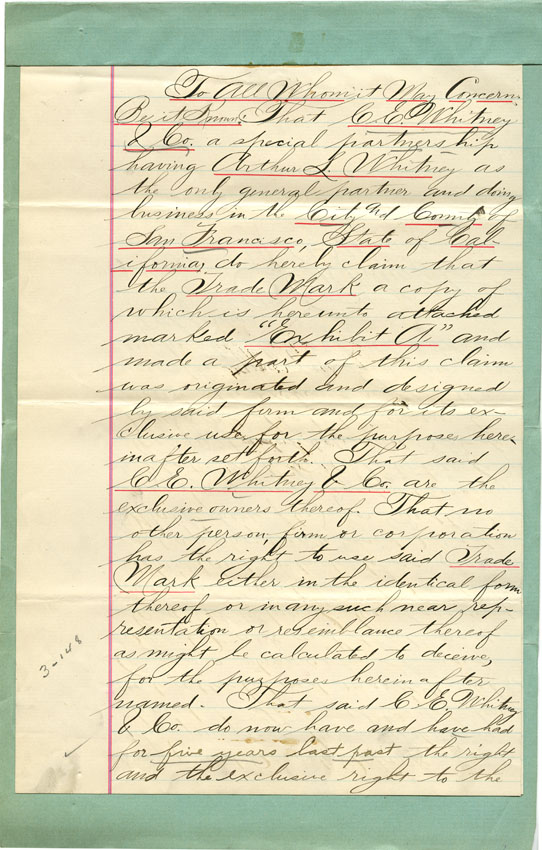 To All Whom it May Concern
Be it Known: That C. E. Whitney
& Co. a special partnership
having Arthur L. Whitney as
the only general partner and doing
business in the City and County of
San Francisco, State of Cal-
ifornia, do hereby claim that
the Trade Mark a copy of
which is hereunto attached
marked "Exhibit A" and
made a part of this claim
was originated and designed
by said firm and for its ex-
clusive use for the purposes here-
inafter set forth. That said
C. E. Whitney & Co. are the
exclusive owners thereof. That no
other person, firm or corporation
has the right to use said Trade
Mark either in the identical form
thereof or in any such near rep-
resentation or resemblance thereof
as might be calculated to deceive,
for the purposes hereinafter
named. That said C. E. Whitney
& Co. do now have and have had
for five years last past the right
and the exclusive right to the
3-148